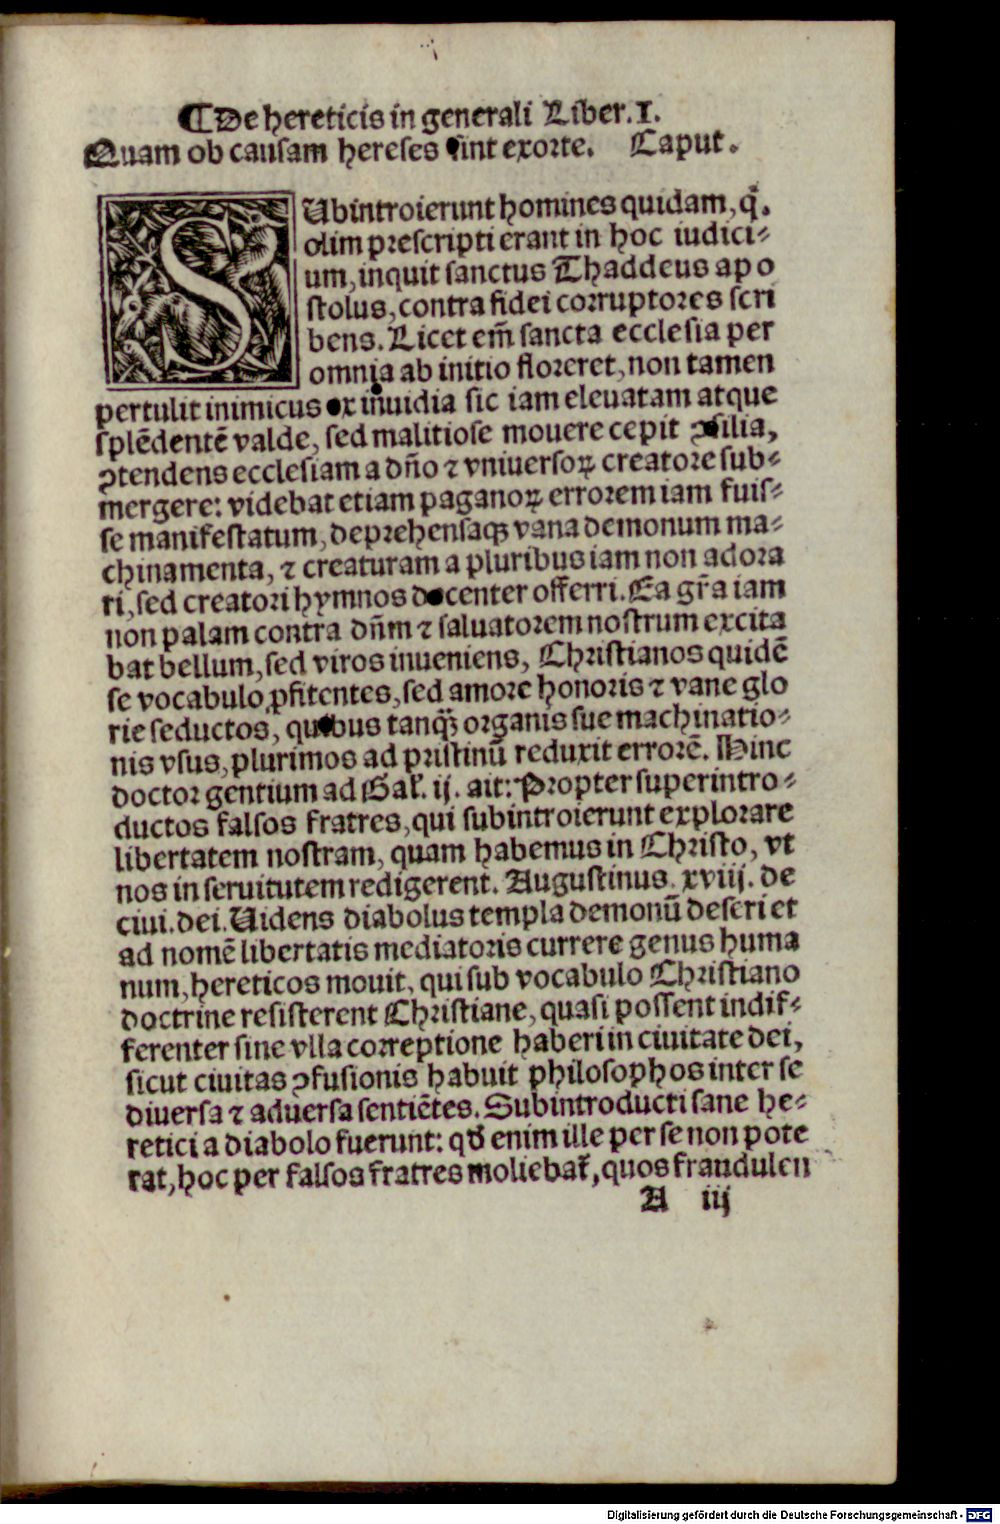 ¶De hereticis in generali Liber.I.
Quam ob causam hereses sint exorte. Caput.
SUbintroierunt homines quidam, q̃.
olim prescripti erant in hoc iudici⸗
um, inquit sanctus Thaddeus apo
stolus, contra fidei corruptores scri
bens. Licet em̃ sancta ecclesia per
omnia ab initio floreret, non tamen
pertulit inimicus ex inuidia sic iam eleuatam atque
splẽdentẽ valde, sed malitiose mouere cepit ꝯsilia,
ꝯtendens ecclesiam a dño ⁊ vniuersoꝝ creatore sub⸗
mergere: videbat etiam paganoꝝ errorem iam fuis⸗
se manifestatum, deprehensaqꝫ vana demonum ma⸗
chinamenta, ⁊ creaturam a pluribus iam non adora
ri, sed creatori hymnos decenter offerri. Ea gr̃a iam
non palam contra dñm ⁊ saluatorem nostrum excita
bat bellum, sed viros inueniens, Christianos quidẽ
se vocabulo ꝓfitentes, sed amore honoris ⁊ vane glo
rie seductos, quibus tanqꝫ̃ organis sue machinatio⸗
nis vsus, plurimos ad pristinũ reduxit errorẽ. Hinc
doctor gentium ad Gal. ij. ait: Propter superintro⸗
ductos falsos fratres, qui subintroierunt explorare
libertatem nostram, quam habemus in Christo, vt
nos in seruitutem redigerent. Augustinus. xviij. de
ciui. dei. Uidens diabolus templa demonũ deseri et
ad nomẽ libertatis mediatoris currere genus huma
num, hereticos mouit, qui sub vocabulo Christiano
doctrine resisterent Christiane, quasi possent indif⸗
ferenter sine vlla correptione haberi in ciuitate dei,
sicut ciuitas ꝯfusionis habuit philosophos inter se
diuersa ⁊ aduersa sentiẽtes. Subintroducti sane he⸗
retici a diabolo fuerunt: qđ enim ille per se non pote
rat, hoc per falsos fratres moliebat̃, quos fraudulen
A iij
Digitalisierung gefördert durch die Deutsche Forschungsgemeinschaft - DFG